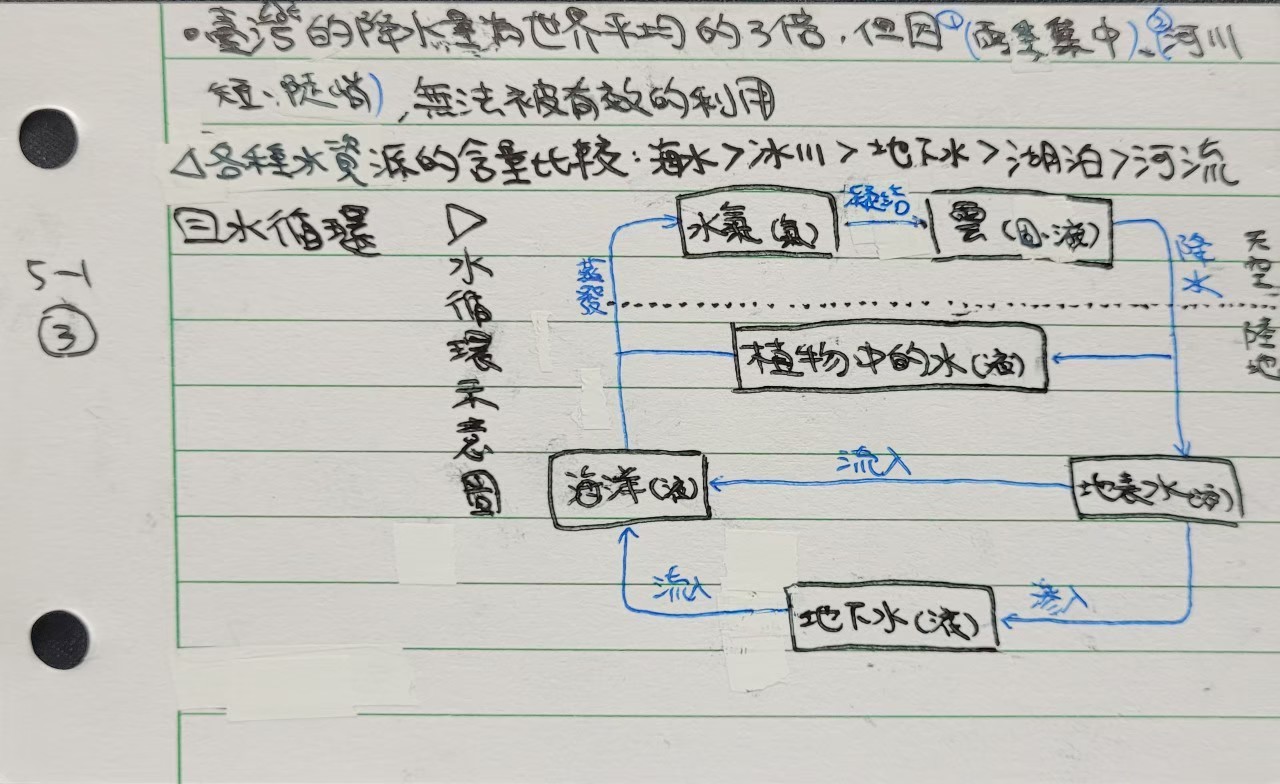 •臺灣的降水量為世界平均的3倍，但因①(雨量集中)、②(河川
短、陡峭)，無法被有效的利用
△各種水資源的含量比較：海水>冰川>地下水>湖泊>河流
三水循環
▷水循環示意圖
5-1
③
水氣(氣)
凝結
雲(固、液)
蒸發
降水
天空
陸地
植物中的水(液)
海洋(液)
流入
地表水(液)
流入
地下水(液)
滲入